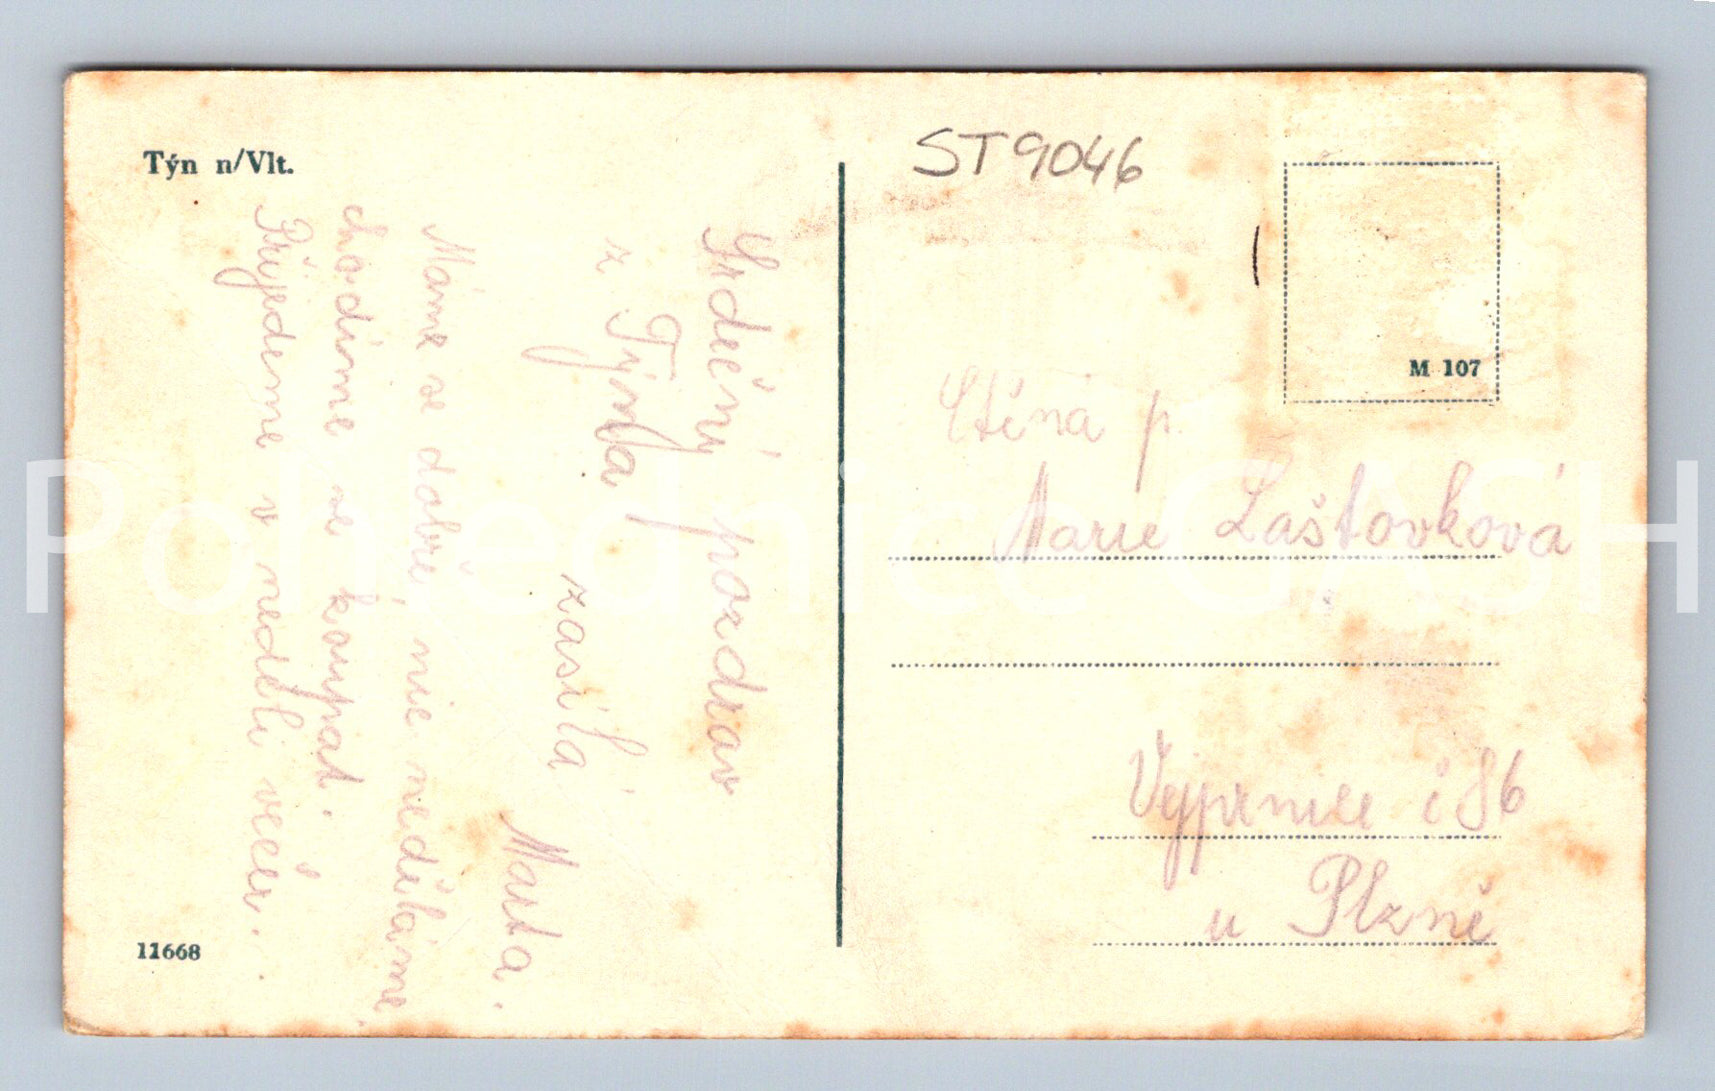 Týn n/Vlt.
Srdečný pozdrav
z Týna
zasílá
Marta.
Máme se dobře, nic neděláme,
chodíme se koupat.
Přijedeme v neděli večer.
11668
ST9046
M 107
Ctěná p.
Marie Laštovková
Vejprnice č 86
u Plzně
Pohlednice GASH